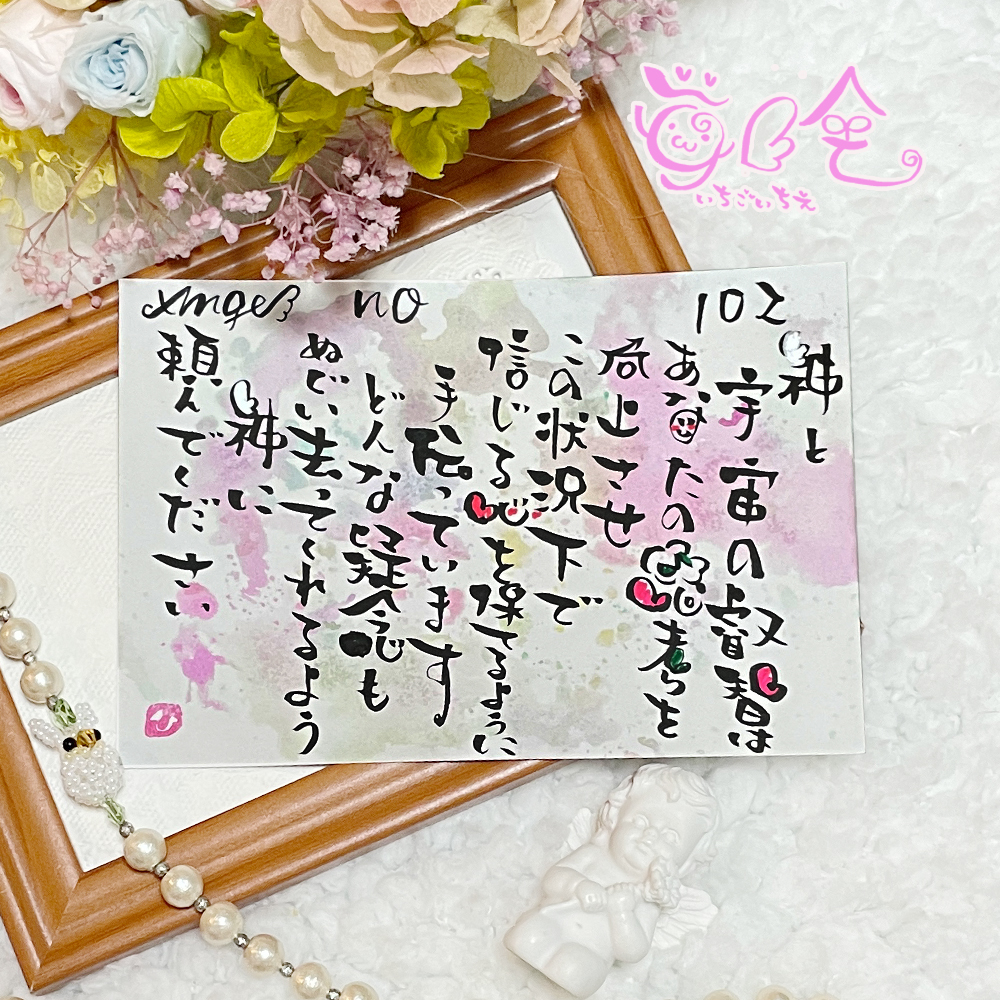 Angel no 102
神と
宇宙の叡智は
あなたの思考を
向上させ
この状況下で
信じる心を保てるように
手伝っています
どんな疑念も
ぬぐい去ってくれるよう
神に
頼んでください
いちごいちえ